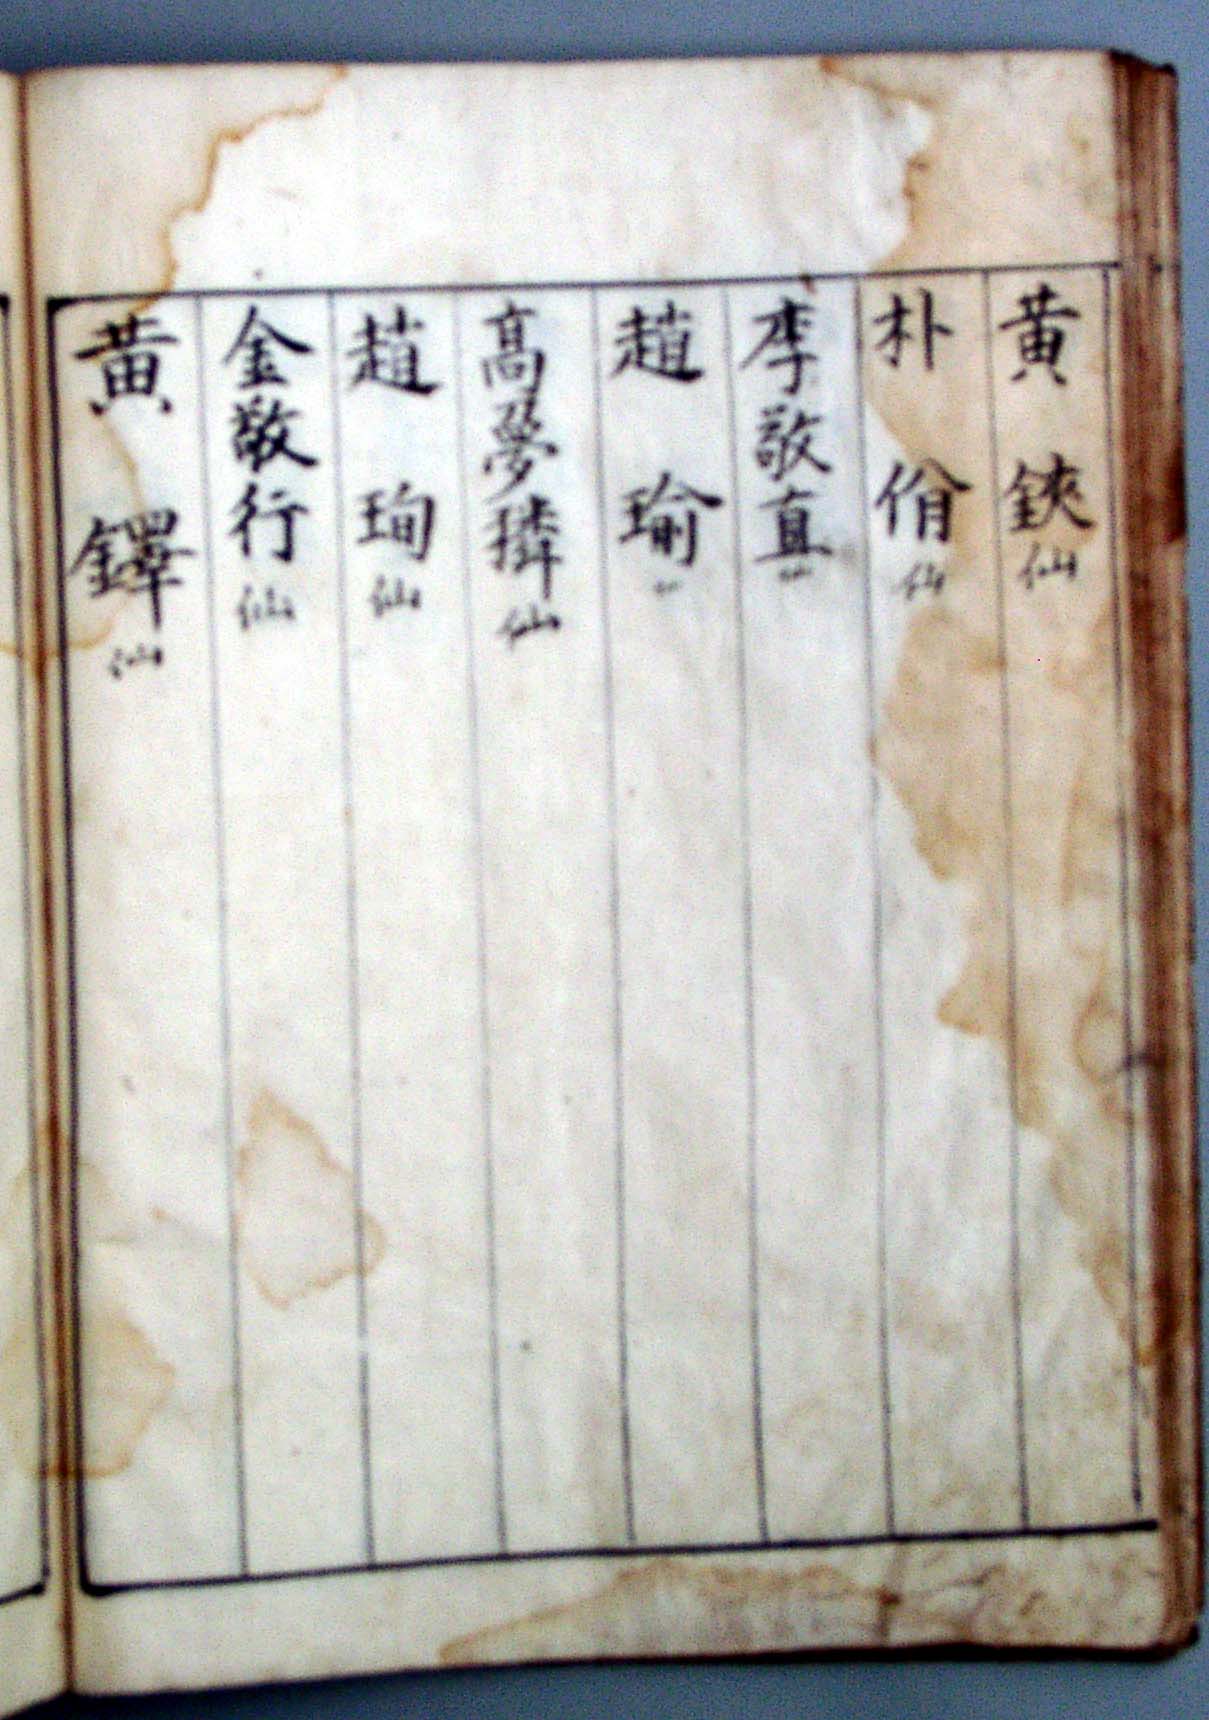 黃鋏仙
朴佾仙
李敬直仙
趙瑜仙
高夢璘仙
趙珣仙
金敬行仙
黃鐸仙